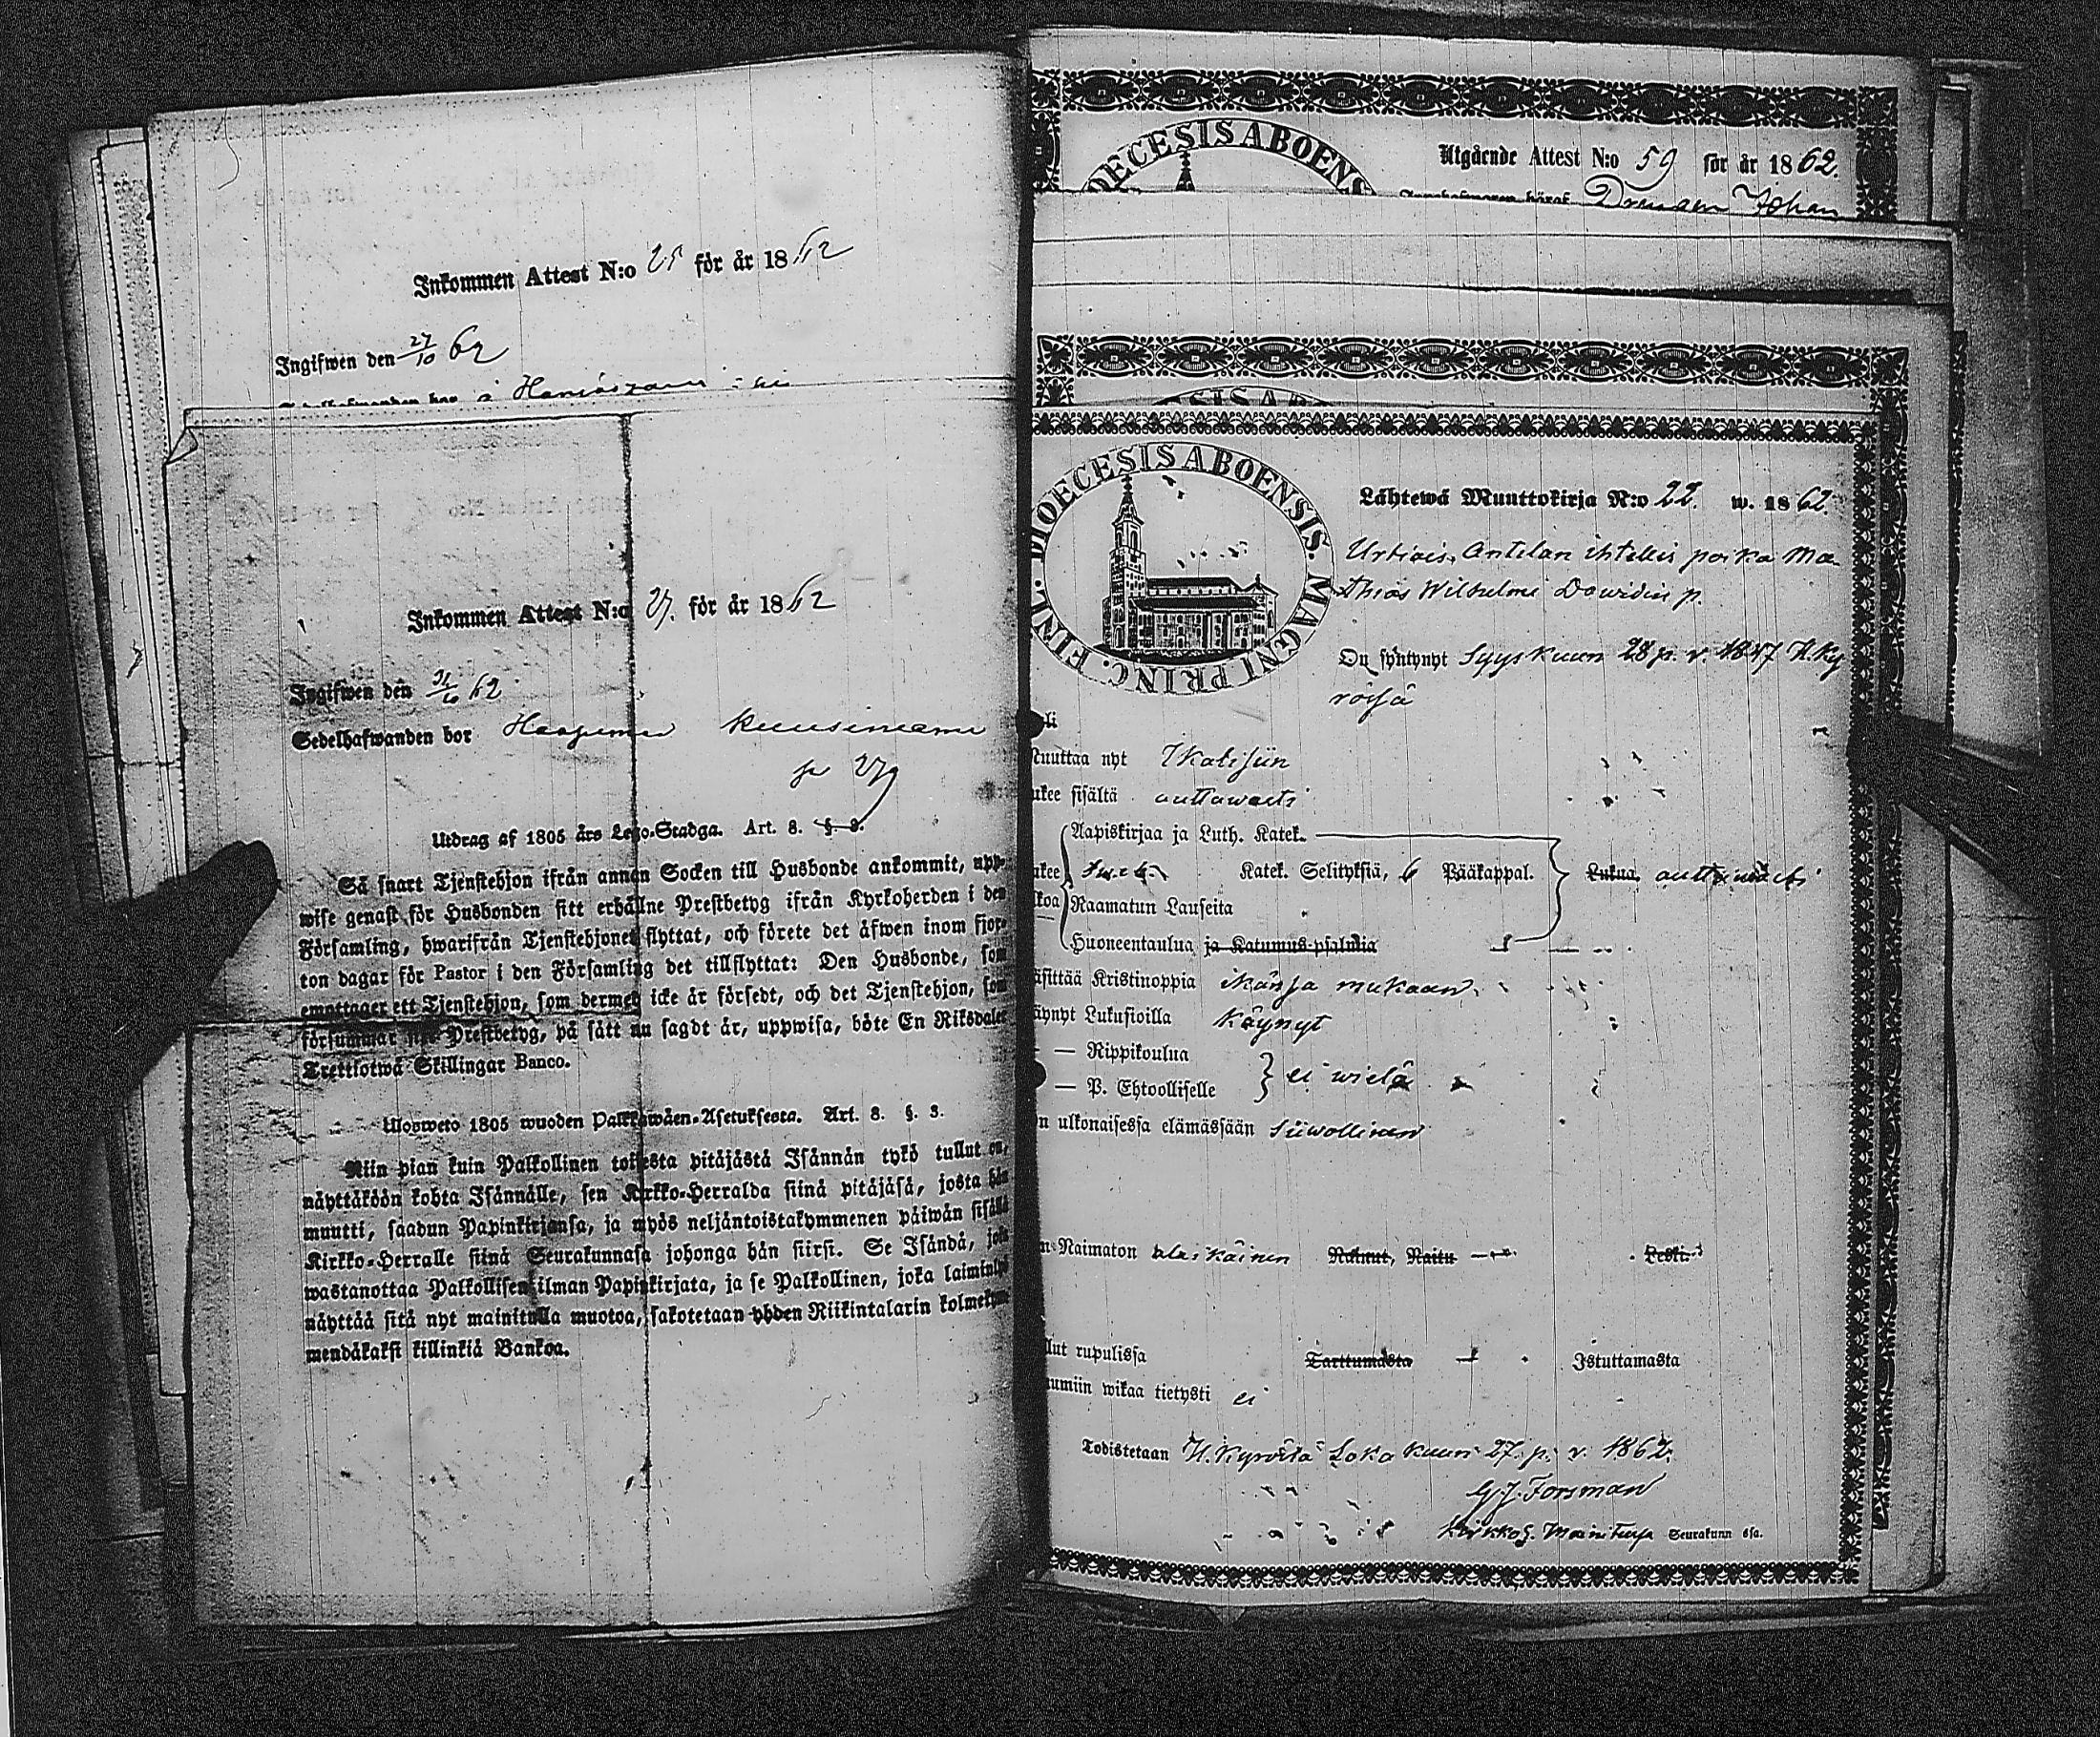 Inkommen Attest N:o för år 1862
Ingifwen den 27/10 62
Inkommen Attest N:o 27. för år 1862
Ingifwen den 62
Sedelhafwanden bor
Utdrag af 1805 års Lego-Stadga. Art. 8. §. 3.
Så snart Tjenstehjon ifrån annan Socken till Husbonde ankommit, upp-
wise genast för Husbonden sitt erhållne Prestbetyg ifrån Kyrkoherden i den
Församling, hwarifrån Tjenstehjonet flyttat, och förete det äfwen inom fjor-
ton dagar för Pastor i den Församling det tillflyttat: Den Husbonde, som
emottager ett Tjenstehjon, som dermed icke är försedt, och det Tjenstehjon, som
försummar Prestbetyg, på sätt nu sagdt är, uppwisa, böte En Riksdaler
Trettiotwå Skillingar Banco.
Ulosweto 1805 wuoden Palkkawäen-Asetuksesta. Art. 8. §. 3.
Niin pian kuin Palkollinen toisesta pitäjästä Isännän tykö tullut on,
näyttäköön kohta Isännälle, sen Kirkko-Herralda siinä pitäjäsä, josta hän
muutti, saadun Papinkirjansa, ja myös neljäntoistakymmenen päiwän sisällä
Kirkko-Herralle siinä Seurakunnasa johonga hän siirsi. Se Isändä, joka
wastanottaa Palkollisen ilman Papinkirjata, ja se Palkollinen, joka laiminlyö
näyttää sitä nyt mainitulla muotoa, sakotetaan yhden Riikintalarin kolmekym-
mendäkaksi killinkiä Bankoa.
DECESIS ABOENS
Utgående Attest N:o 59 för år 1862.
Johan
DIOECESIS ABOENSIS. MAGNI PRINC. FINL.
Lähtewä Muuttokirja N:o 22. w. 1862.
Antilan ihtellis poika Ma-
thias Wilhelmi Dawidin p.
On syntynyt Syyskuun 28 p. v. 1847 H. Ky
rössä
uuttaa nyt Ikalisiin
ukee sisältä auttawasti
Aapiskirjaa ja Luth. Katek.
Katek. Selityksiä, 6 Pääkappal. Lukua, auttawasti
Raamatun Lauseita
Huoneentaulua ja Katumus-psalmia
äsittää Kristinoppia ikänsä mukaan.
äynyt Lukusioilla Käynyt
— Rippikoulua
— P. Ehtoolliselle } ei wielä
n ulkonaisessa elämässään siiwollinen
n Naimaton alaikäinen Naimut, Naitu Leski
lut rupulissa Tarttumasta Istuttamasta
umiin wikaa tietysti ei
Todistetaan H. Kyröstä Lokakuun 27. p. v. 1862.
G. J. Forsman
Kirkkoh. Mainitussa Seurakunn ssa.